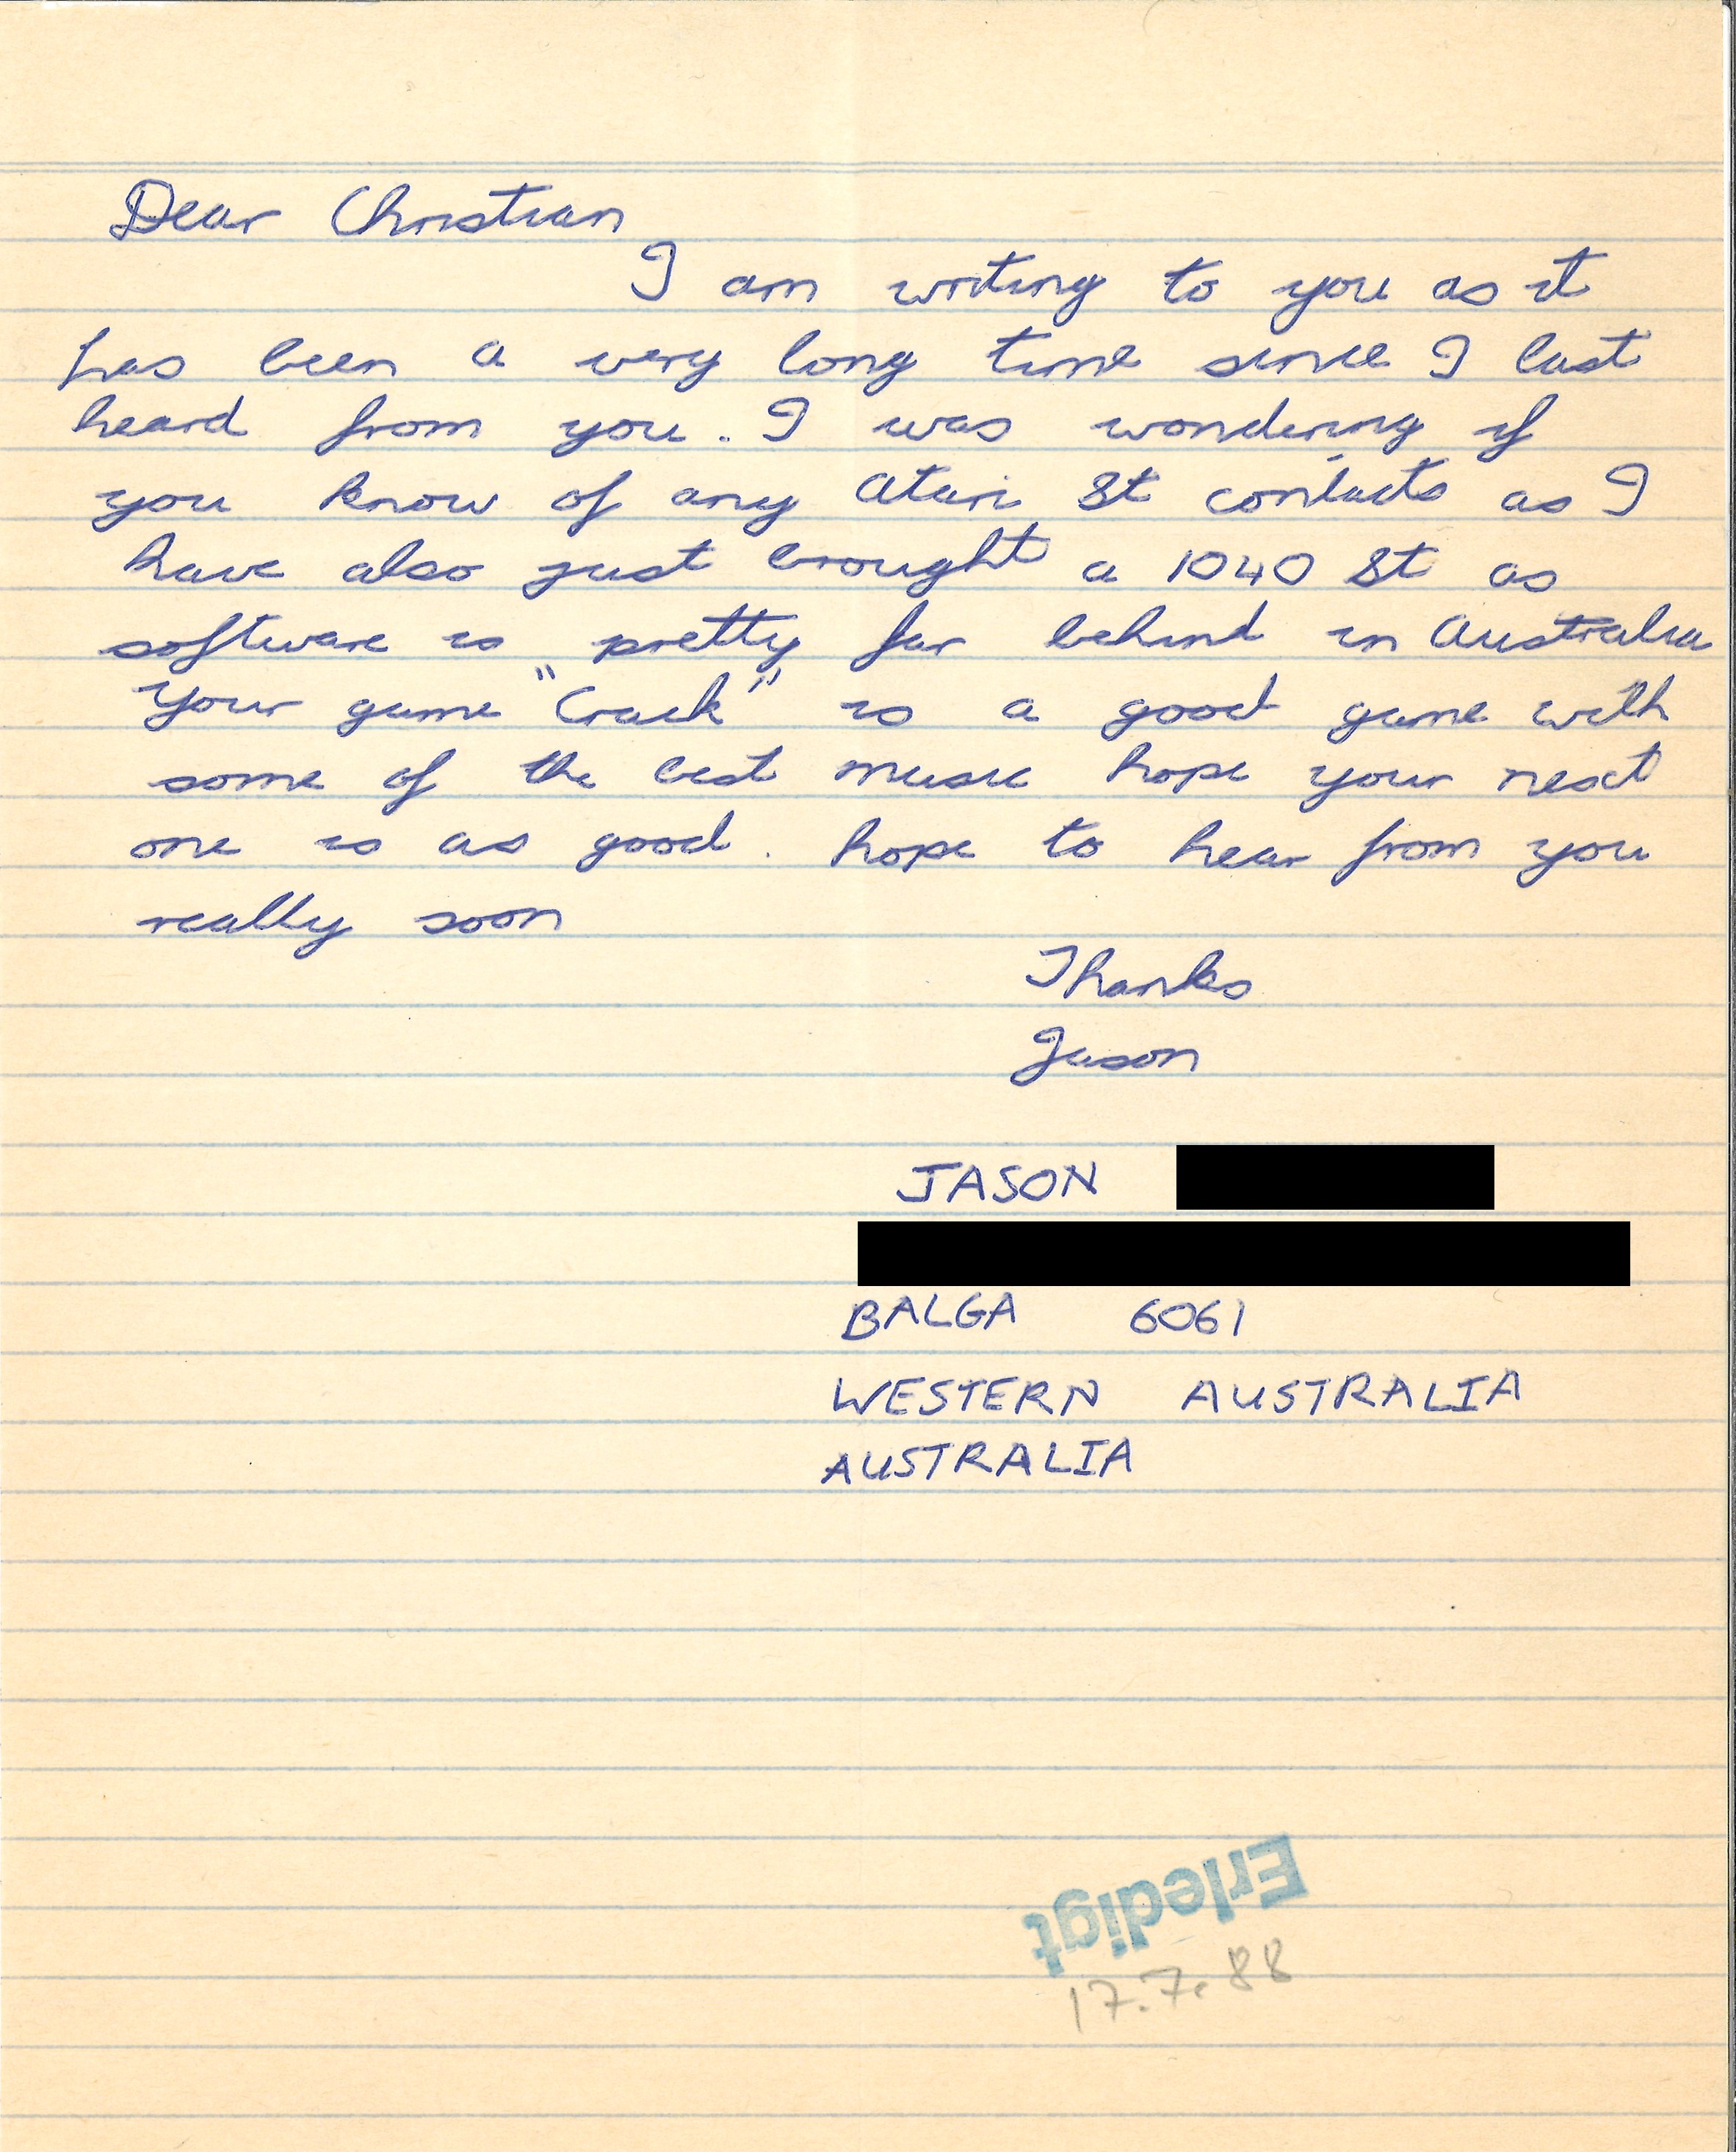 Dear Christian
I am writing to you as it
has been a very long time since I last
heard from you. I was wondering if
you know of any Atari St contacts as I
have also just brought a 1040 St as
software is pretty far behind in Australia
Your game "Crack" is a good game with
some of the best music hope your next
one is as good. hope to hear from you
really soon
Thanks
Jason
JASON
BALGA 6061
WESTERN AUSTRALIA
AUSTRALIA
Erledigt
17.7.88